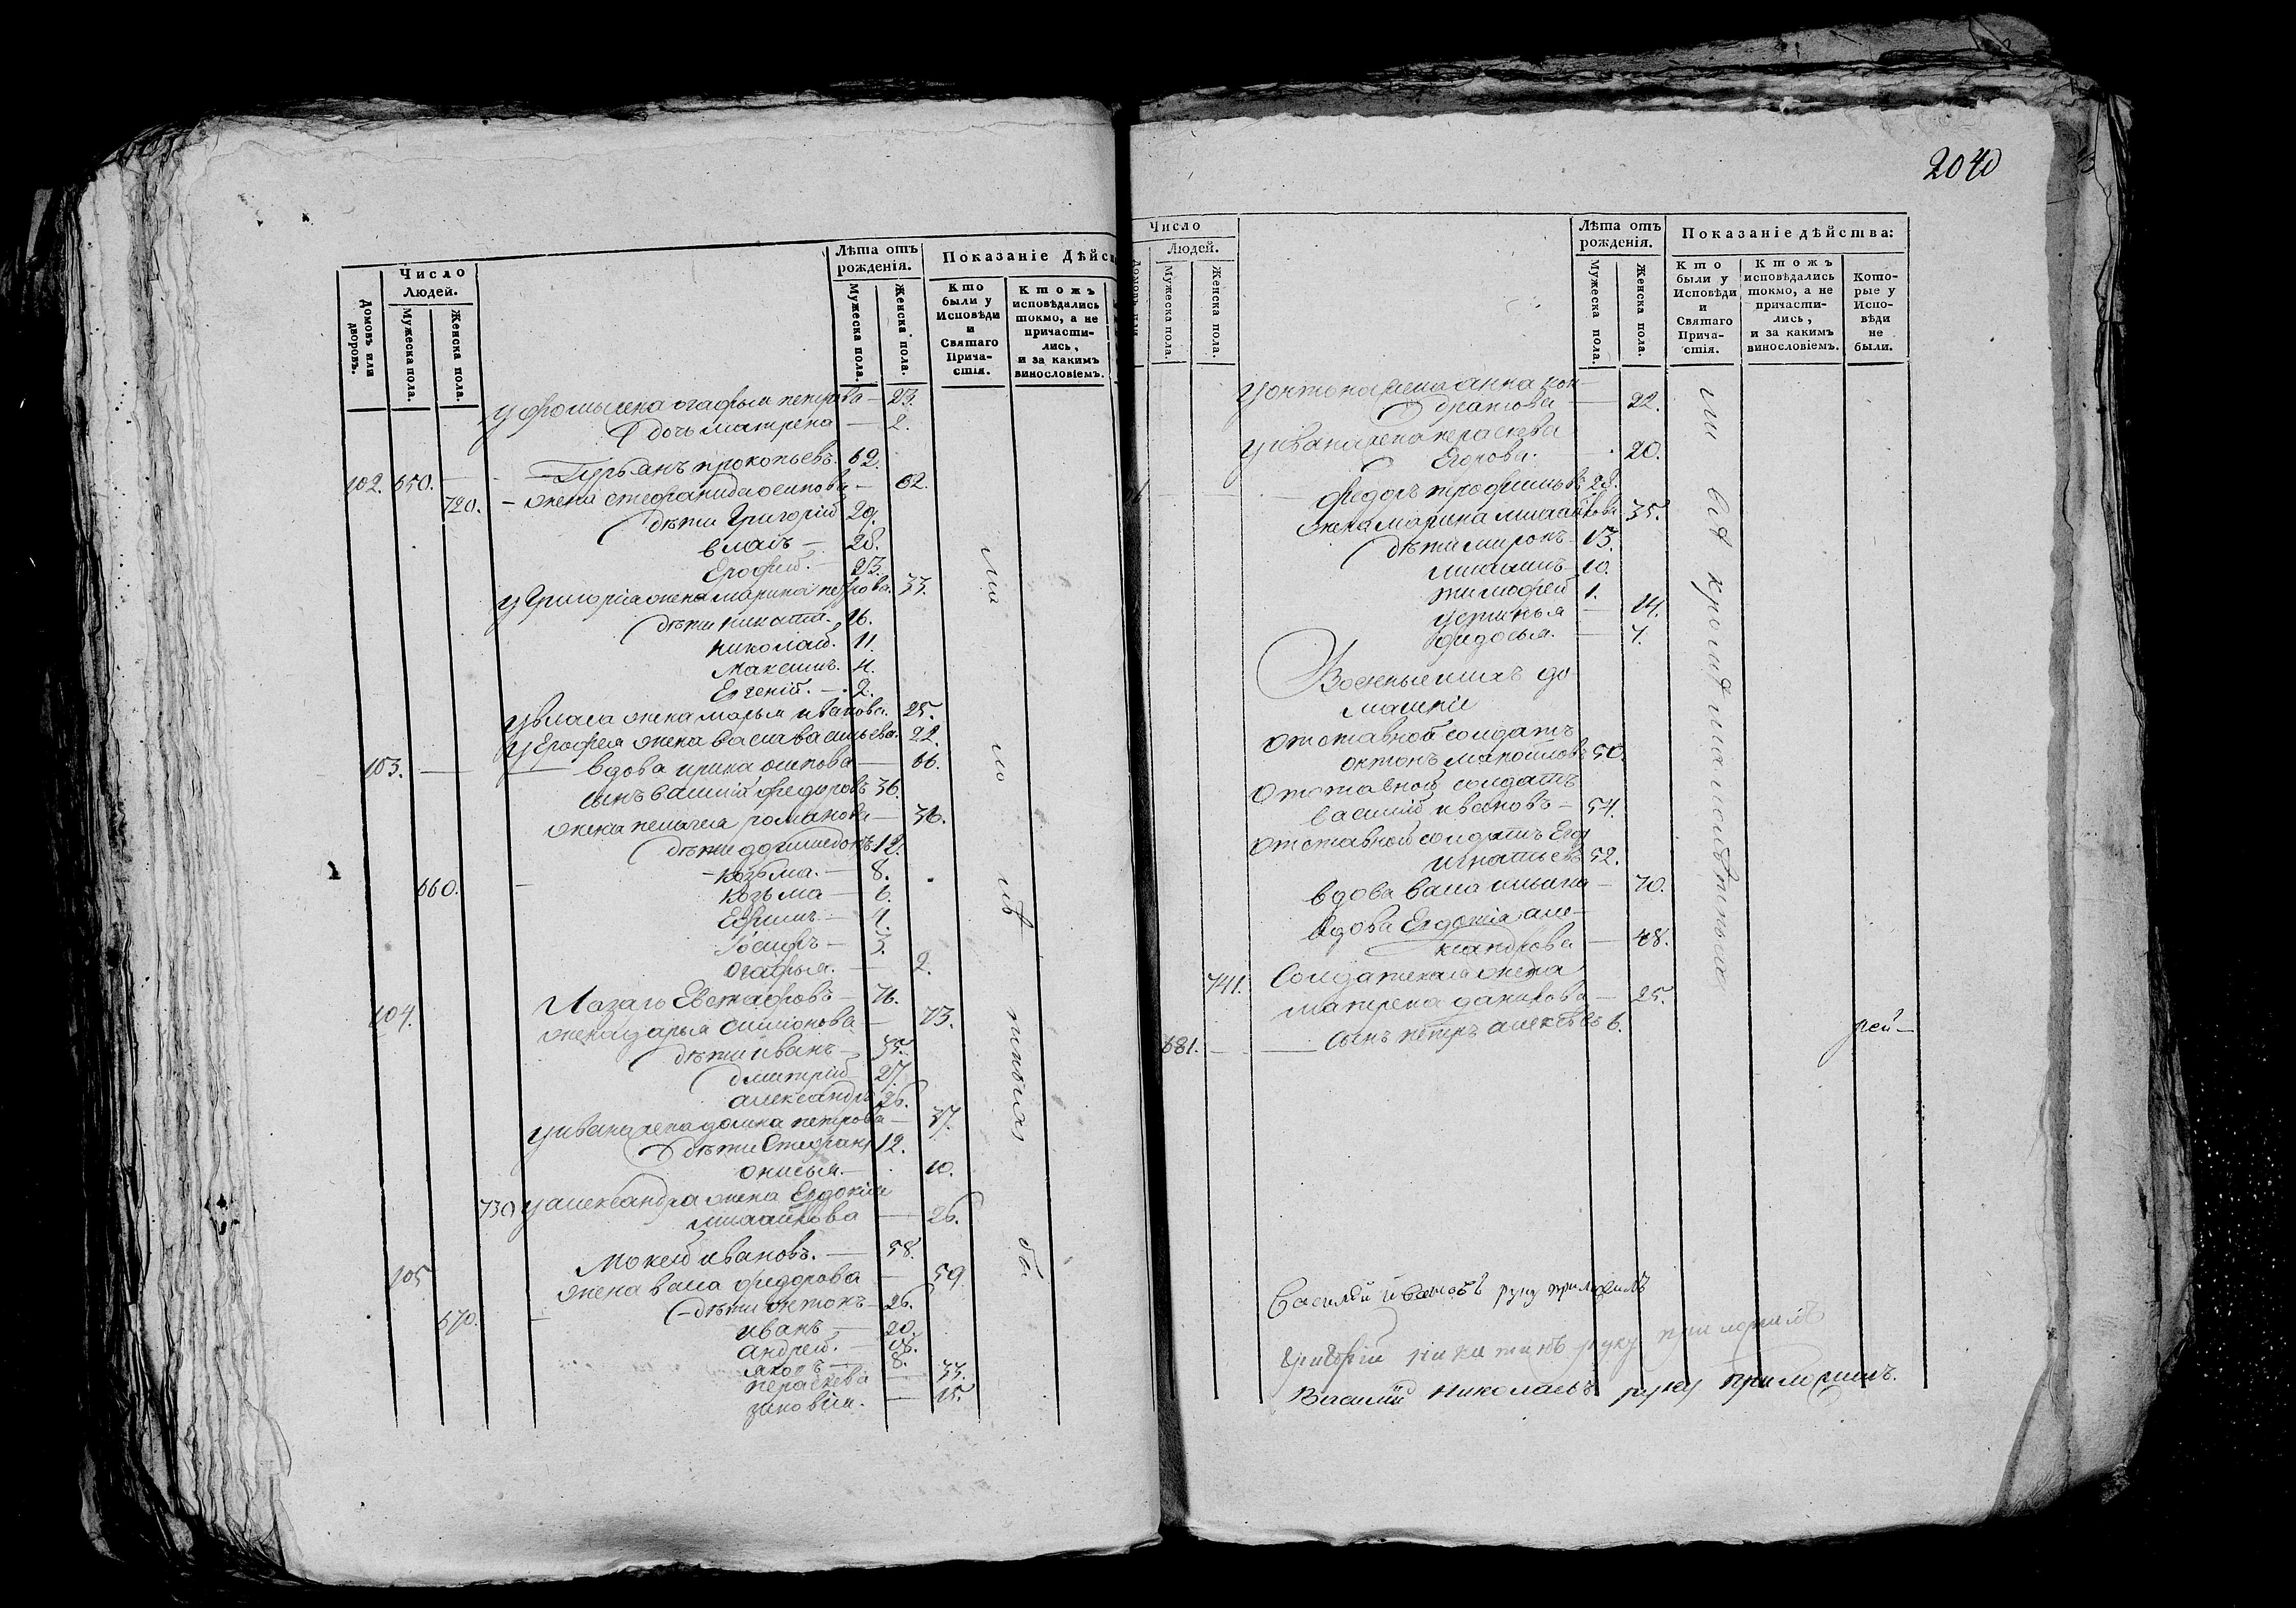 Число
Людей.
Лѣта отъ
рожденія.
Показаніе Дѣйс
Домовъ или
дворовъ.
Мужеска пола.
Женска пола.
Мужеска пола.
Женска пола.
Кто
были у
Исповѣди
и
Святаго
Прича-
стія.
Ктожъ
исповѣдались
токмо, а не
причасти-
лись,
и за какимъ
винословіемъ.
у фомы жена огафья петрова — 23.
дочь матрена — 2.
102. 650. — Гурьянъ прокопьевъ. 62.
720. — жена стефанида осипова — 62.
дѣти Григорій 29.
власъ — 28.
Ерофей. — 23.
у Григорія жена марина петрова. 33.
дѣти 16.
николай. 11.
максимъ. 4.
Евгеній. — 2.
у власа жена марья иванова. 25.
у Ерофея жена васильева. 22.
103. — вдова ирина осипова — 66.
сынъ василій федоровъ 36.
жена пелагея романова — 36.
дѣти 12.
козьма. — 8.
660. — козьма — 6.
Ефимъ — 4.
Іосифъ — 3.
огафья. — 2.
104. Лазарь Евстафьевъ — 76.
жена дарья симіонова — 73.
дѣти иванъ — 35.
дмитрій 27.
александръ 26.
у ивана жена домна петрова — 37.
дѣти Стефанъ 12.
онисья. — 10.
730 у александра жена Евдокія
михайлова — 26.
105 Мокей ивановъ. — 58.
жена васа федорова — 59.
670. — дѣти онтонъ — 26.
иванъ — 20.
андрей. — 18.
яковъ — 8.
пераскева — 33.
зиновія. — 15.
2040
Число
Людей.
Лѣта отъ
рожденія.
Показаніе дѣйства:
Мужеска пола.
Женска пола.
Мужеска пола.
Женска пола.
Кто
были у
Исповѣди
и
Святаго
Прича-
стія.
Ктожъ
исповѣдались
токмо, а не
причасти-
лись,
и за какимъ
винословіемъ.
Кото-
рые у
Испо-
вѣди
не
были.
у онтона жена анна кон-
дратова — 22.
у ивана жена пераскева
Егорова. — 20.
федоръ трофимовъ 28.
жена марина михайлова 35.
дѣти миронъ 13.
михаилъ 10.
тимофей 1.
устинья — 14.
федосья. — 7.
Военные и ихъ до
машніе
отставной солдатъ
онтонъ 50.
отставной солдатъ
василій ивановъ — 54.
отставной солдатъ Егоръ
игнатьевъ 52.
вдова васа ильина — 70.
вдова Евдотія але-
ксандрова — 48.
741. Солдатская жена
матрена данилова — 25.
681. — сынъ петръ алексѣевъ 6.
всѣ кромѣ малолѣтныхъ
Василій ивановъ руку приложилъ
григорій никитинъ руку приложилъ
Василій Николаевъ руку приложилъ.